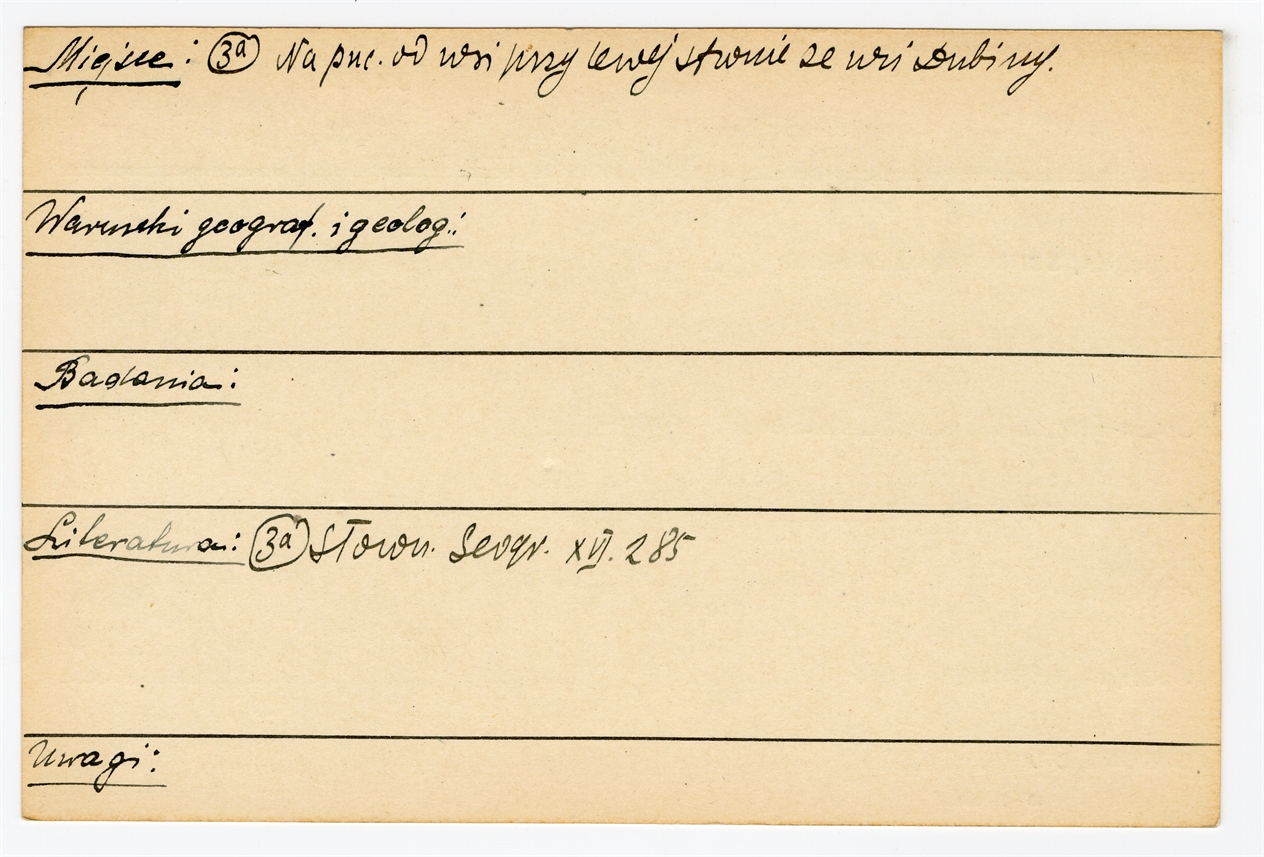 Miejsce: 3a Na płnc. od wsi przy lewej stronie ze wsi Dubiny.
Warunki geograf. i geolog.:
Badania:
Literatura: 3a Słown. Geogr. XVI. 285
Uwagi: